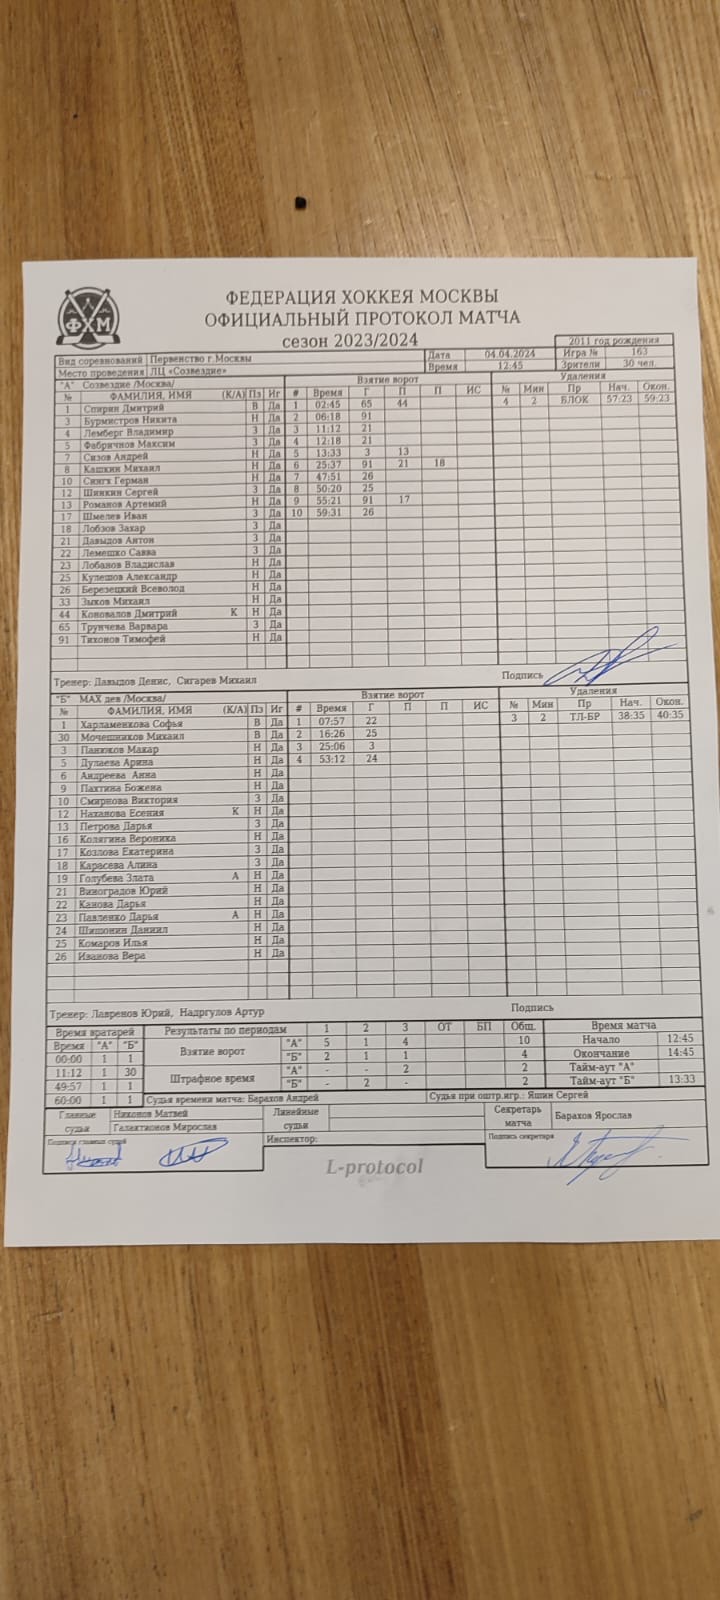 ФХМ
ФЕДЕРАЦИЯ ХОККЕЯ МОСКВЫ
ОФИЦИАЛЬНЫЙ ПРОТОКОЛ МАТЧА
сезон 2023/2024
2011 год рождения
Вид соревнований Первенство г.Москвы Дата 04.04.2024 Игра № 163
Место проведения ЛЦ «Созвездие» Время 12:45 Зрители 30 чел.
"А" Созвездие /Москва/ Взятие ворот Удаления
№ ФАМИЛИЯ, ИМЯ (К/А) Пз Иг # Время Г П П ИС № Мин Пр Нач. Окон.
1 Спирин Дмитрий В Да 1 02:45 65 44 4 2 БЛОК 57:23 59:23
3 Бурмистров Никита Н Да 2 06:18 91
4 Лемберг Владимир З Да 3 11:12 21
5 Фабричнов Максим З Да 4 12:18 21
7 Сизов Андрей Н Да 5 13:33 3 13
8 Кашкин Михаил Н Да 6 25:37 91 21 18
10 Сингх Герман Н Да 7 47:51 26
12 Шинкин Сергей З Да 8 50:20 25
13 Романов Артемий Н Да 9 55:21 91 17
17 Шмелев Иван З Да 10 59:31 26
18 Лобзов Захар З Да
21 Давыдов Антон З Да
22 Лемешко Савва З Да
23 Лобанов Владислав Н Да
25 Кулешов Александр Н Да
26 Березецкий Всеволод Н Да
33 Зыков Михаил Н Да
44 Коновалов Дмитрий К Н Да
65 Трунчева Варвара З Да
91 Тихонов Тимофей Н Да
Тренер: Давыдов Денис, Сигарев Михаил Подпись
"Б" МАХ дев /Москва/ Взятие ворот Удаления
№ ФАМИЛИЯ, ИМЯ (К/А) Пз Иг # Время Г П П ИС № Мин Пр Нач. Окон.
1 Харламенкова Софья В Да 1 07:57 22 3 2 ТЛ-БР 38:35 40:35
30 Мочешников Михаил В Да 2 16:26 25
3 Панюков Макар Н Да 3 25:06 3
5 Дулаева Арина Н Да 4 53:12 24
6 Андреева Анна Н Да
9 Пахтина Божена Н Да
10 Смирнова Виктория З Да
12 Наханова Есения К Н Да
13 Петрова Дарья З Да
16 Колягина Вероника Н Да
17 Козлова Екатерина З Да
18 Карасева Алина З Да
19 Голубева Злата А Н Да
21 Виноградов Юрий Н Да
22 Канова Дарья Н Да
23 Павленко Дарья А Н Да
24 Шишонин Даниил Н Да
25 Комаров Илья Н Да
26 Иванова Вера Н Да
Тренер: Лавренов Юрий, Надргулов Артур Подпись
Время вратарей Результаты по периодам 1 2 3 ОТ БП Общ. Время матча
Время "А" "Б" Взятие ворот "А" 5 1 4 10 Начало 12:45
00:00 1 1 "Б" 2 1 1 4 Окончание 14:45
11:12 1 30 Штрафное время "А" - - 2 2 Тайм-аут "А"
49:57 1 1 "Б" - 2 - 2 Тайм-аут "Б" 13:33
60:00 1 1 Судья времени матча: Барахов Андрей Судья при оштр.игр.: Яшин Сергей
Главные судьи Никонов Матвей Линейные судьи Секретарь матча Барахов Ярослав
Галактионов Мирослав
Подписи главных судей Инспектор: Подпись секретаря
L-protocol